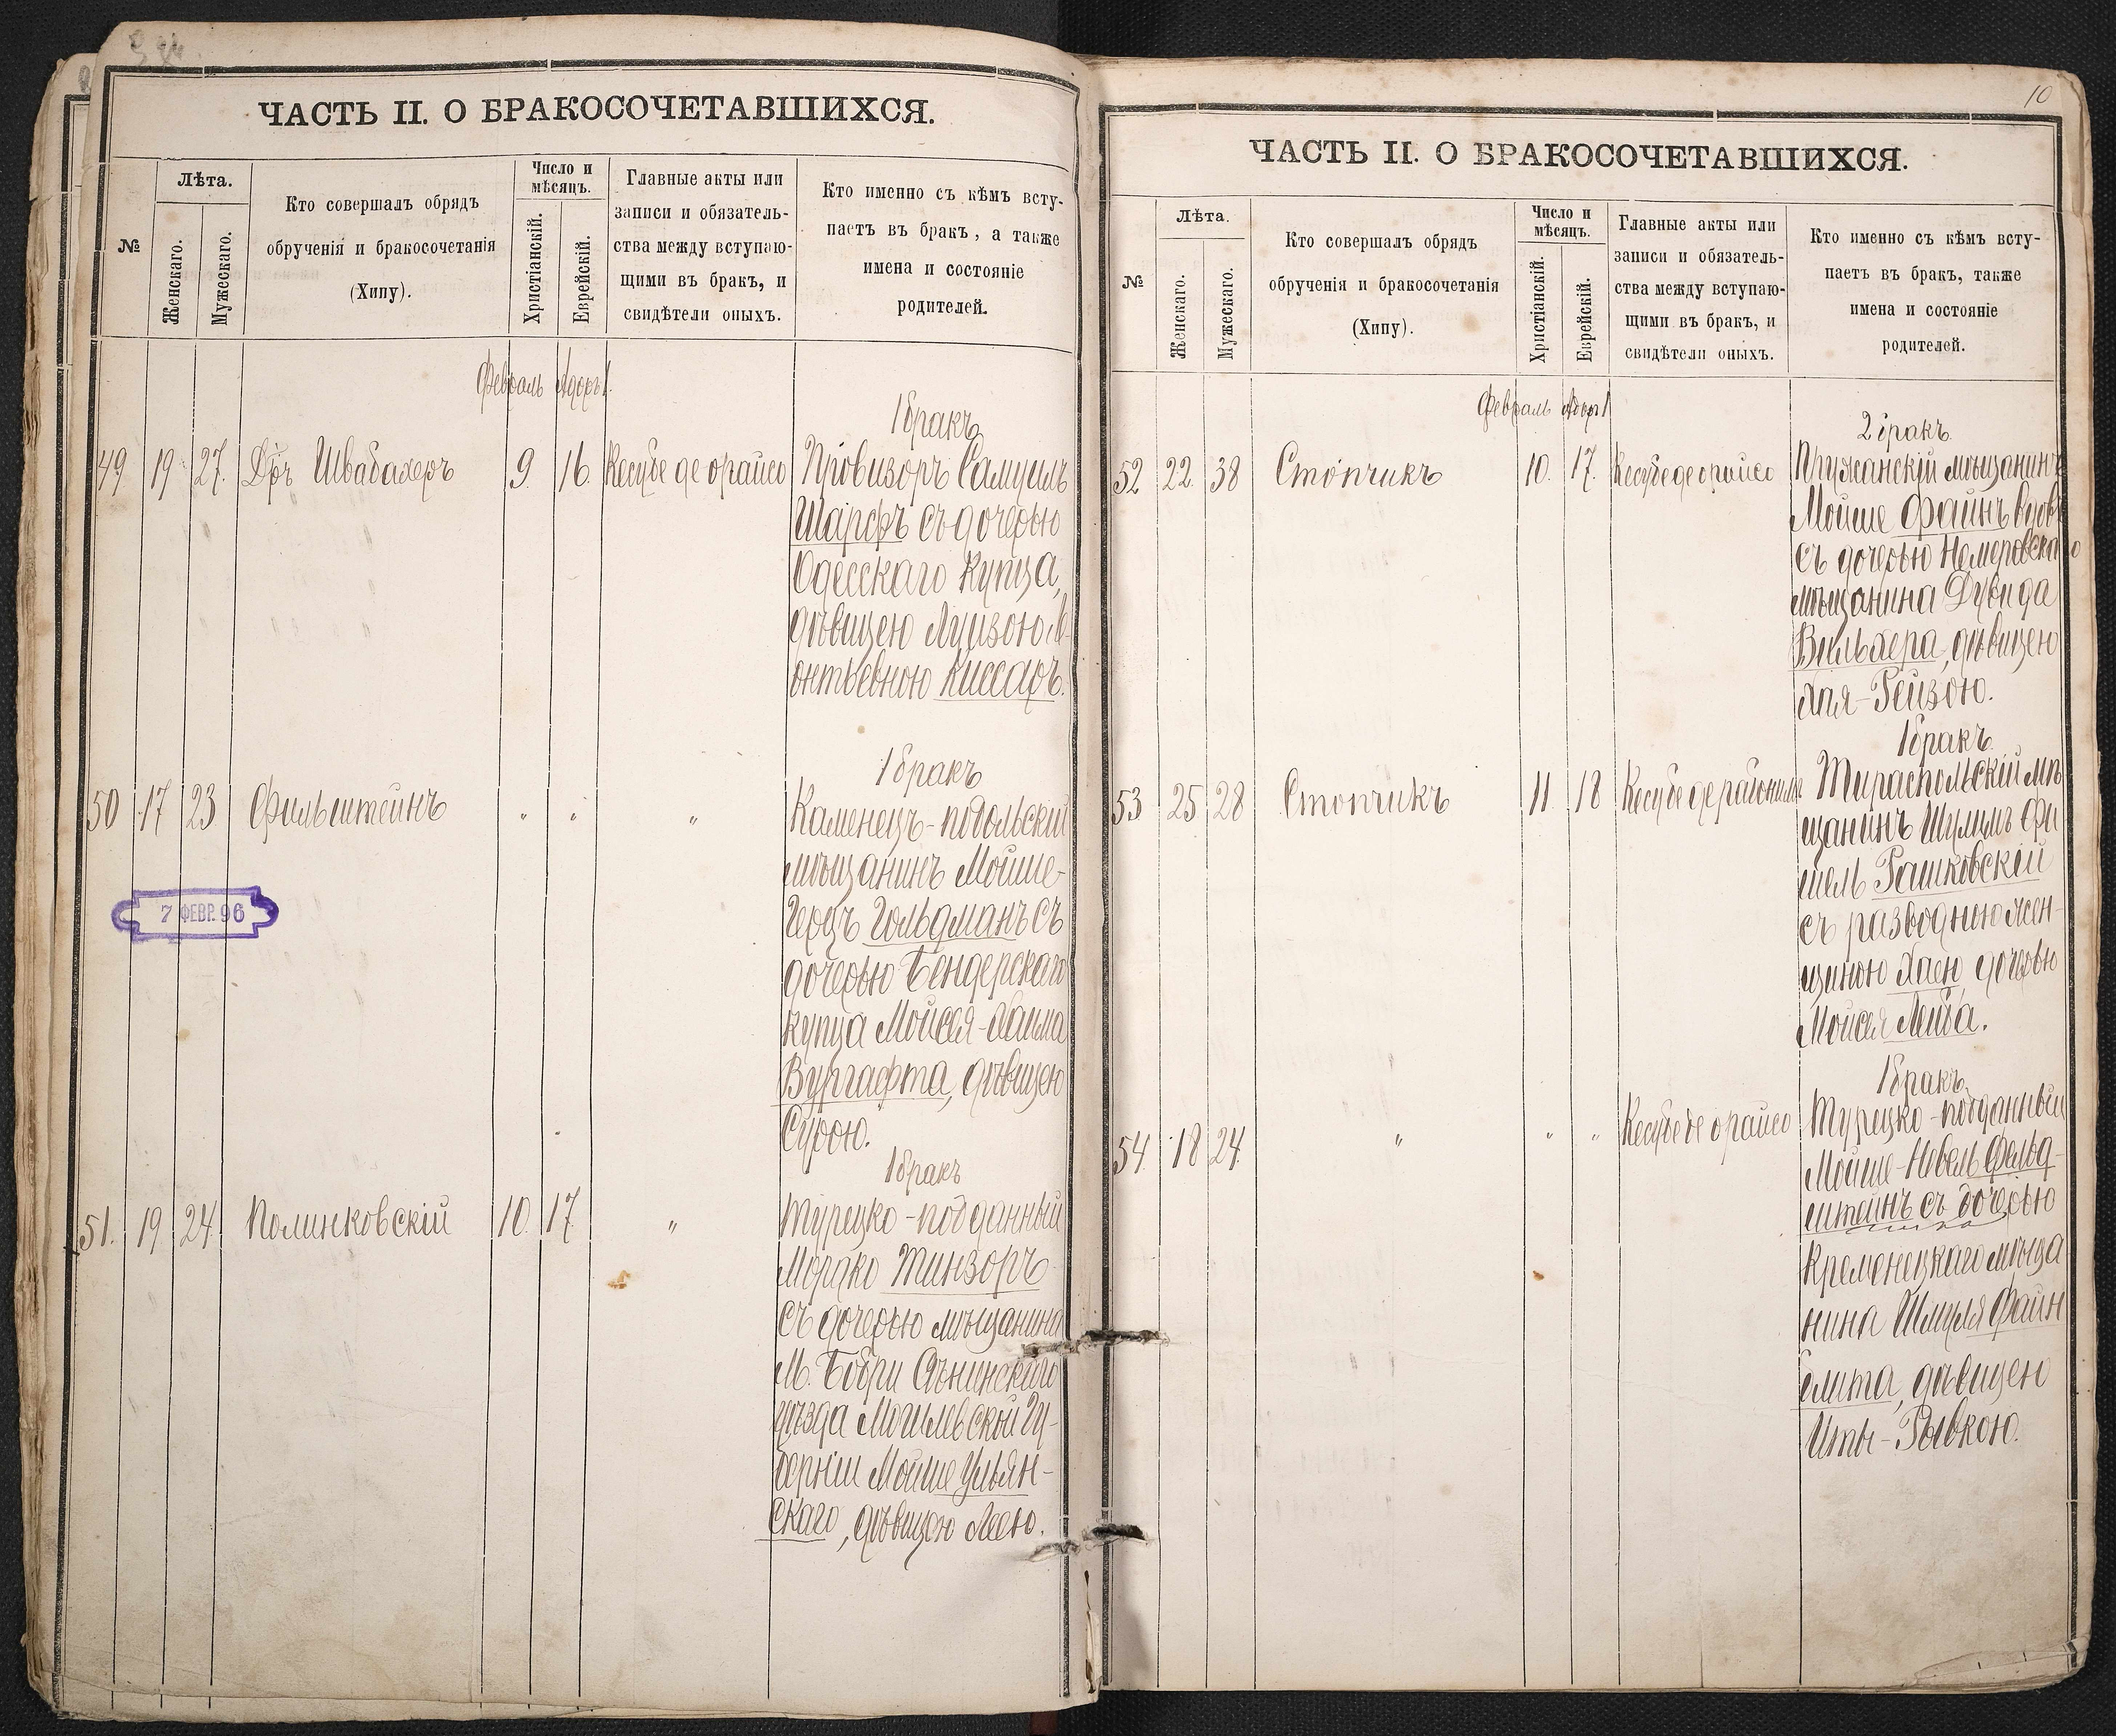 ЧАСТЬ II. О БРАКОСОЧЕТАВШИХСЯ.
№
Лѣта.
Женскаго.
Мужескаго.
Кто совершалъ обрядъ
обрученія и бракосочетанія
(Хипу).
Число и
мѣсяцъ.
Христіанскій.
Еврейскій.
Главные акты или
записи и обязатель-
ства между вступаю-
щими въ бракъ, и
свидѣтели оныхъ.
Кто именно съ кѣмъ всту-
паетъ въ бракъ, а также
имена и состояніе
родителей.
Февраль Адоръ 1.
1 бракъ
49 19 27. Д-ръ Швабахеръ 9. 16. Кесубе де орайсо Провизоръ Самуилъ
Шарфъ съ дочерью
Одесскаго купца,
дѣвицею Луизою Ле-
онтьевною Киссаръ.
1 бракъ
50 17 23 Фильштейнъ " " " Каменецъ-подольскій
мѣщанинъ Мойше-
Герцъ Гольдманъ съ
дочерью Бендерскаго
купца Мойсея-Хаима
Вургафта, дѣвицею
Сурою.
7 ФЕВР. 96
1 бракъ
51. 19 24 Полинковскій 10. 17. " Турецко-подданный
Марко Тинзоръ
съ дочерью мѣщанина
М. Бобри Сѣнинскаго
уѣзда Могилевской Гу-
берніи Мойше Ульян-
скаго, дѣвицею Леею.
10
ЧАСТЬ II. О БРАКОСОЧЕТАВШИХСЯ.
№
Лѣта.
Женскаго.
Мужескаго.
Кто совершалъ обрядъ
обрученія и бракосочетанія
(Хипу).
Число и
мѣсяцъ.
Христіанскій.
Еврейскій.
Главные акты или
записи и обязатель-
ства между вступаю-
щими въ бракъ, и
свидѣтели оныхъ.
Кто именно съ кѣмъ всту-
паетъ въ бракъ, также
имена и состояніе
родителей.
Февраль Адоръ 1
2 бракъ
52 22. 38 Стопчикъ 10. 17. Кесубе де орайсо Пружанскій мѣщанинъ
Мойше Файнъ вдов
съ дочерью Немеровскаго
мѣщанина Дувида
Вильхера, дѣвицею
Хая-Рейзою.
1 бракъ
53 25 28 Стопчикъ 11. 18 Кесубе Тираспольскій мѣ-
щанинъ Шулимъ Фи
шель Рашковскій
съ разводною жен-
щиною Хаею, дочерью
Мойсея Лейба.
1 бракъ
54. 18 24. " " " Кесубе де орайсо Турецко-подданный
Мойше- Фельд-
штейнъ съ дочерью
Кременецкаго мѣща
нина Шмуля Файн
блита, дѣвицею
Иты-Рывкою.